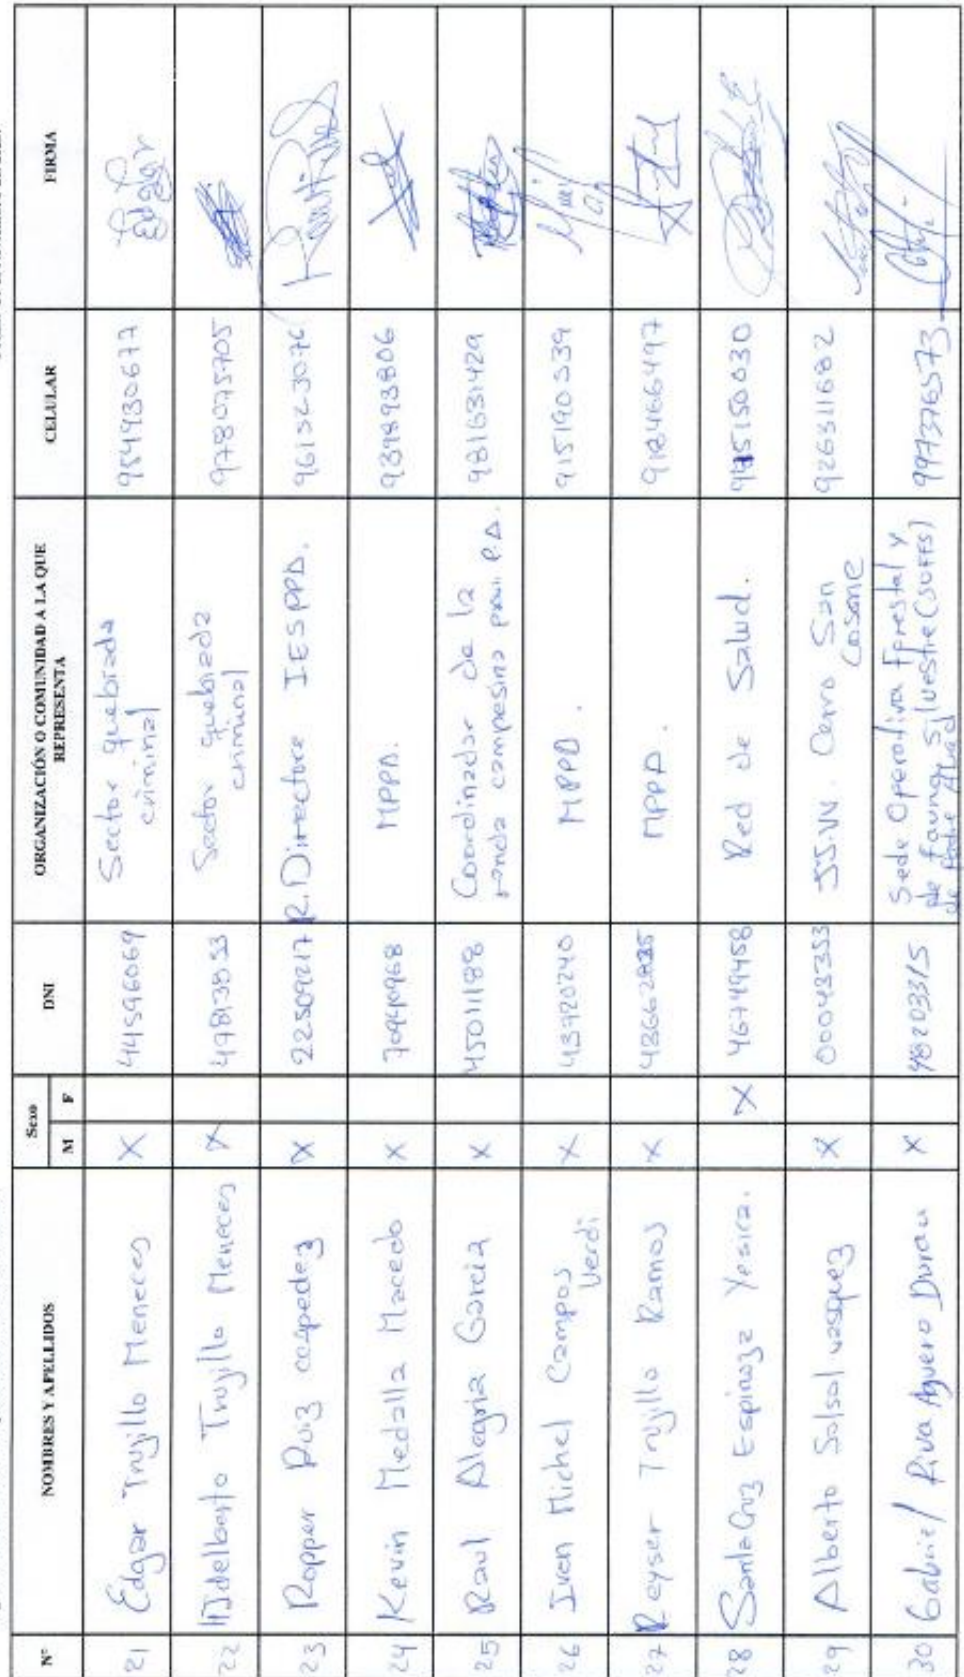 N° NOMBRES Y APELLIDOS Sexo M F DNI ORGANIZACIÓN O COMUNIDAD A LA QUE REPRESENTA CELULAR FIRMA
21 Edgar Trujillo Meneces X 44596069 Sector quebrada criminal 954930677 Edgar
22 Trujillo Meneces X Sector quebrada criminal 978075705
23 Ropper Ruiz X 22509217 R. Directore IESPPD. 961523076
24 Kevin Medalla Macedo X 70940968 MPPD. 939893806
25 Raul Alegria Garcia X 45011188 Coordinador de la ronda campesina P.A. 981631429
26 Iven Michel Campos Verdi X 43720240 MPPD. 915190539
27 Reyser Trujillo Ramos X MPPD. 918466497
28 Santa Cruz Espinoza Yesica. X 46749458 Red de Salud. 975150030
29 Alberto Salsal vasquez X 00043353 JJ.VV. Cerro San Cosme 926311682
30 Gabriel Riva Aguero Durau X Sede Operativa Forestal y de fauna Silvestre (SOFFS) de Padre Abad 997376573